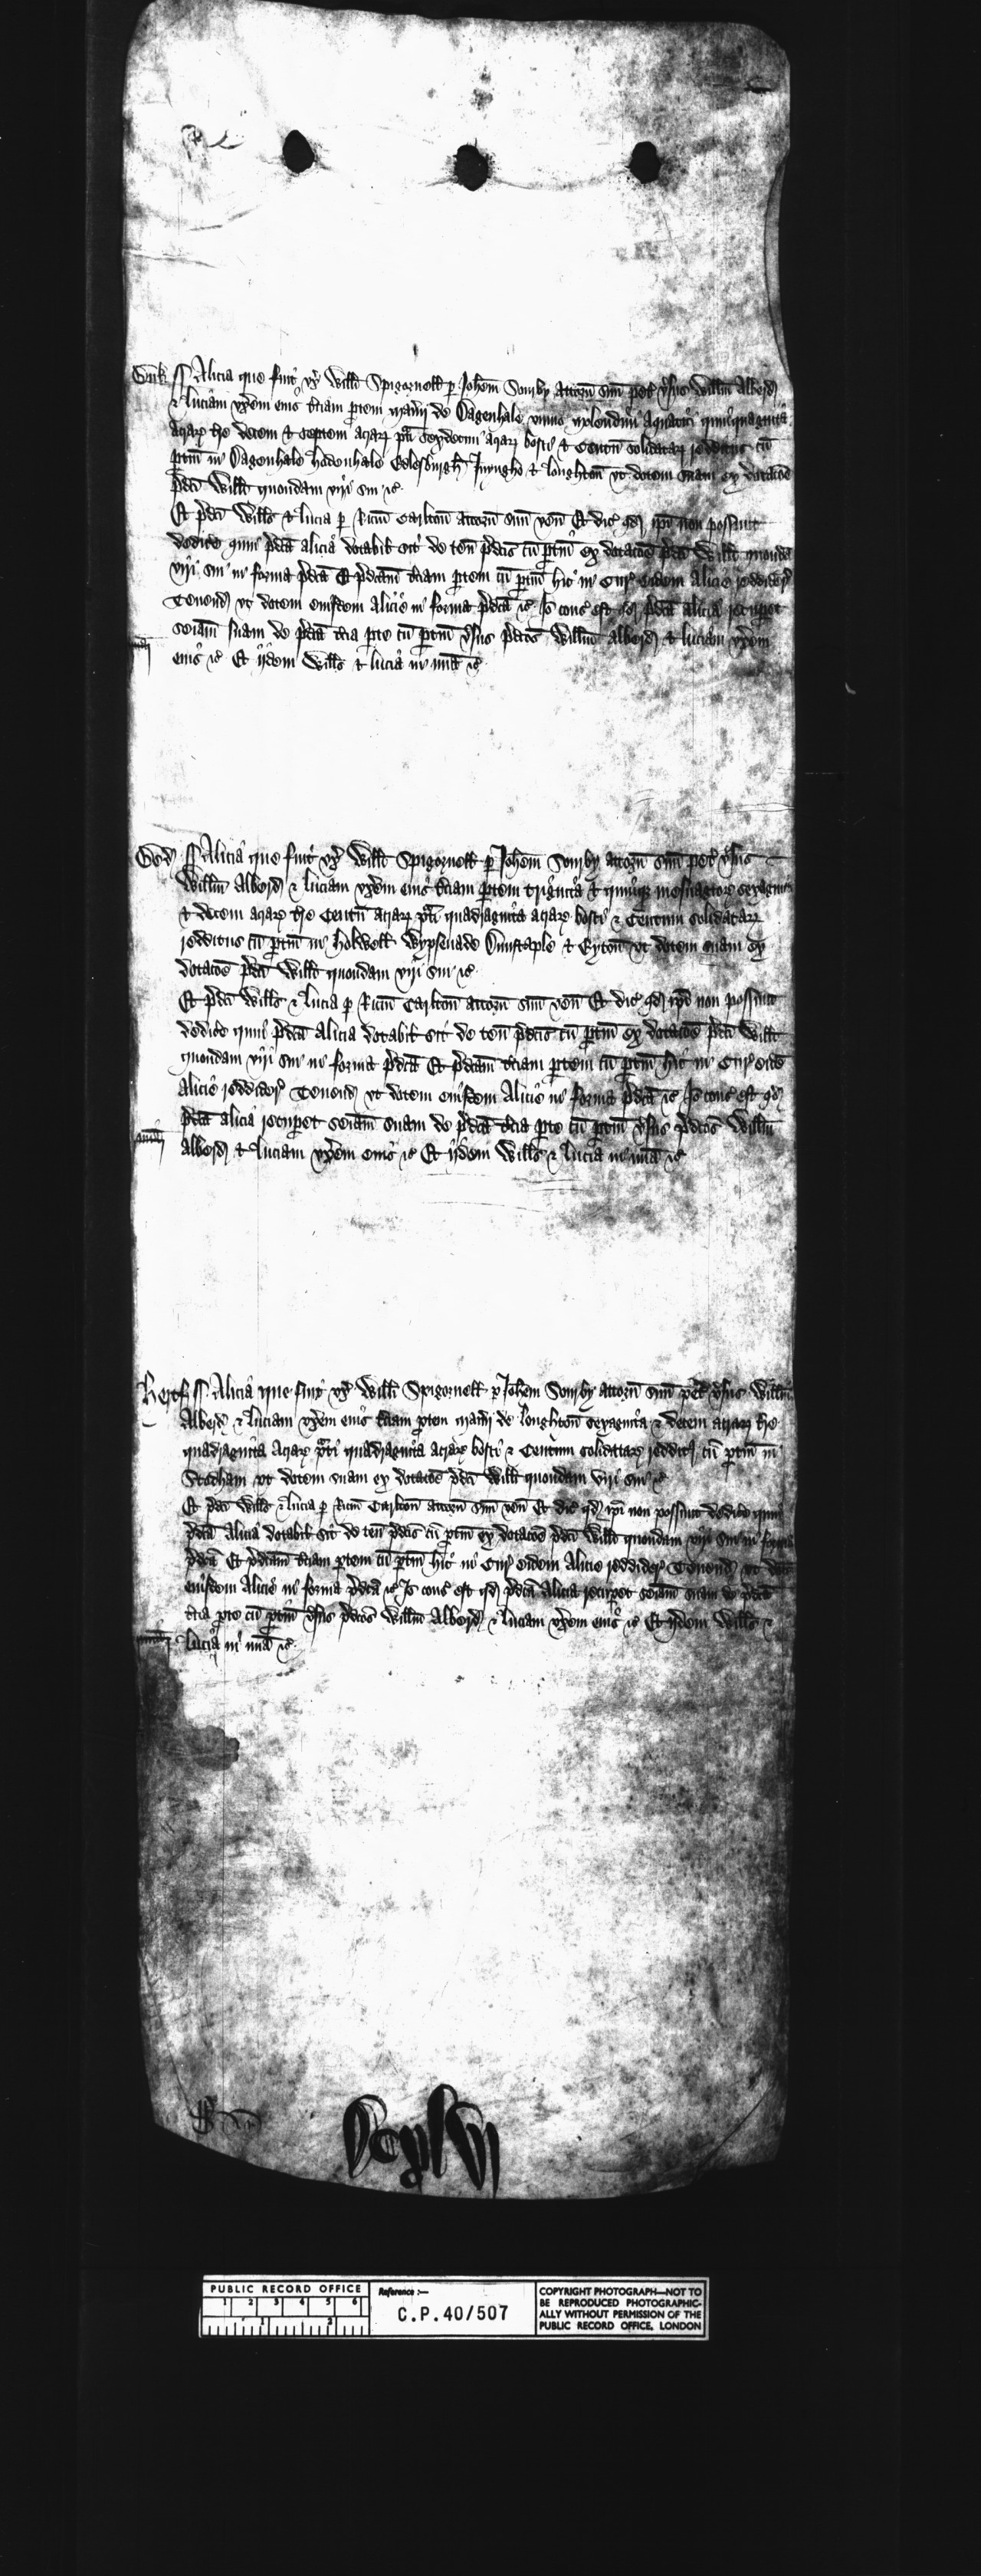 Buk ss Alicia que fuit vx̄ Willi Spigornell p Johem Somby attorn suu pet vsus Willm Alberd
& Luciam vxem eius tciam ptem maner de Dagenhale vnius molendini aquatici quinquaginta
acrar tre decem & septem acrar pti sexdecim acrar bosci & Centu solidatar redditus cu
ptin in Dagenhale hodenhale Edlesburgh Iuyngho & Loughton vt dotem suam ex dotacoe
pdci Willi quondam viri sui &c
Et pdci Wills & Lucia p Ricm Carlton attorn suu ven Et dic qd ipi non possunt
dedice quin pdca Alicia dotabit sit de ten pdcis cu ptin ex dotacoe pdci Willi quonda
viri sui in forma pdca Et pdcam tciam ptem cu ptin hic in Cur eidem Alicie reddider
Tenend vt dotem eiusdem Alicie in forma pdca &c Io cons est qd pdca Alicia recupet
seiam suam de pdca tcia pte cu ptin vsus pdcos Willm Alberd & Luciam vxem
eius &c Et ijdem Wills & Lucia in mia &c
mia
Bed ss Alicia que fuit vx Willi Spigornell p Johem Somby attorn suu pet vsus
Willm Alberd & Luciam vxem eius tciam ptem triginta & quinqz mesuagior sexaginta
& decem acrar tre Centu acrar pti quadraginta acrar bosci & Centum solidatar
redditus cu ptin in holwell Wypsenade Dunstaple & Eyton vt dotem suam ex
dotacoe pdci Willi quondam viri sui &c
Et pdci Wills & Lucia p Ricm Carlton attorn suu ven Et dic qd ipi non possunt
dedice quin pdca Alicia dotabit sit de ten pdcis cu ptin ex dotacoe pdci Willi
quondam viri sui in forma pdca Et pdcam tciam ptem cu ptin hic in Cur eide
Alicie reddider Tenend vt dotem eiusdem Alicie in forma pdca &c Io cons est qd
pdca Alicia recupet seiam suam de pdca tcia pte cu ptin vsus pdcos Willm
mia
Alberd & Luciam vxem eius &c Et ijdem Wills & Lucia in mia &c
Hertf ss Alicia que fuit vx Willi Spigornell p Johem Somby attorn suu pet vsus Willm
Alberd & Luciam vxem eius tciam ptem maner de Loughton sexaginta & decem acrar tre
quadraginta acrar pti quadraginta acrar bosci & Centum solidatar reddit cu ptin in
Stodham vt dotem suam ex dotacoe pdci Willi quondam viri sui &c
Et pdci Wills & Lucia p Ricm Carlton attorn suu ven Et dic qd ipi non possunt dedice quin
pdca Alicia dotabit sit de ten pdcis cu ptin ex dotacoe pdci Willi quondam viri sui in forma
pdca Et pdcam tciam ptem cu ptin hic in Cur eidem Alicie reddider Tenend vt dote
eiusdem Alicie in forma pdca &c Io cons est qd pdca Alicia recupet seiam suam de pdca
tcia pte cu ptin vsus pdcos Willm Alberd & Luciam vxem eius &c Et ijdem Wills &
mia
Lucia in mia &c
PUBLIC RECORD OFFICE
1 2 3 4 5 6
1 2
Reference :—
C.P.40/507
COPYRIGHT PHOTOGRAPH—NOT TO
BE REPRODUCED PHOTOGRAPHIC-
ALLY WITHOUT PERMISSION OF THE
PUBLIC RECORD OFFICE, LONDON